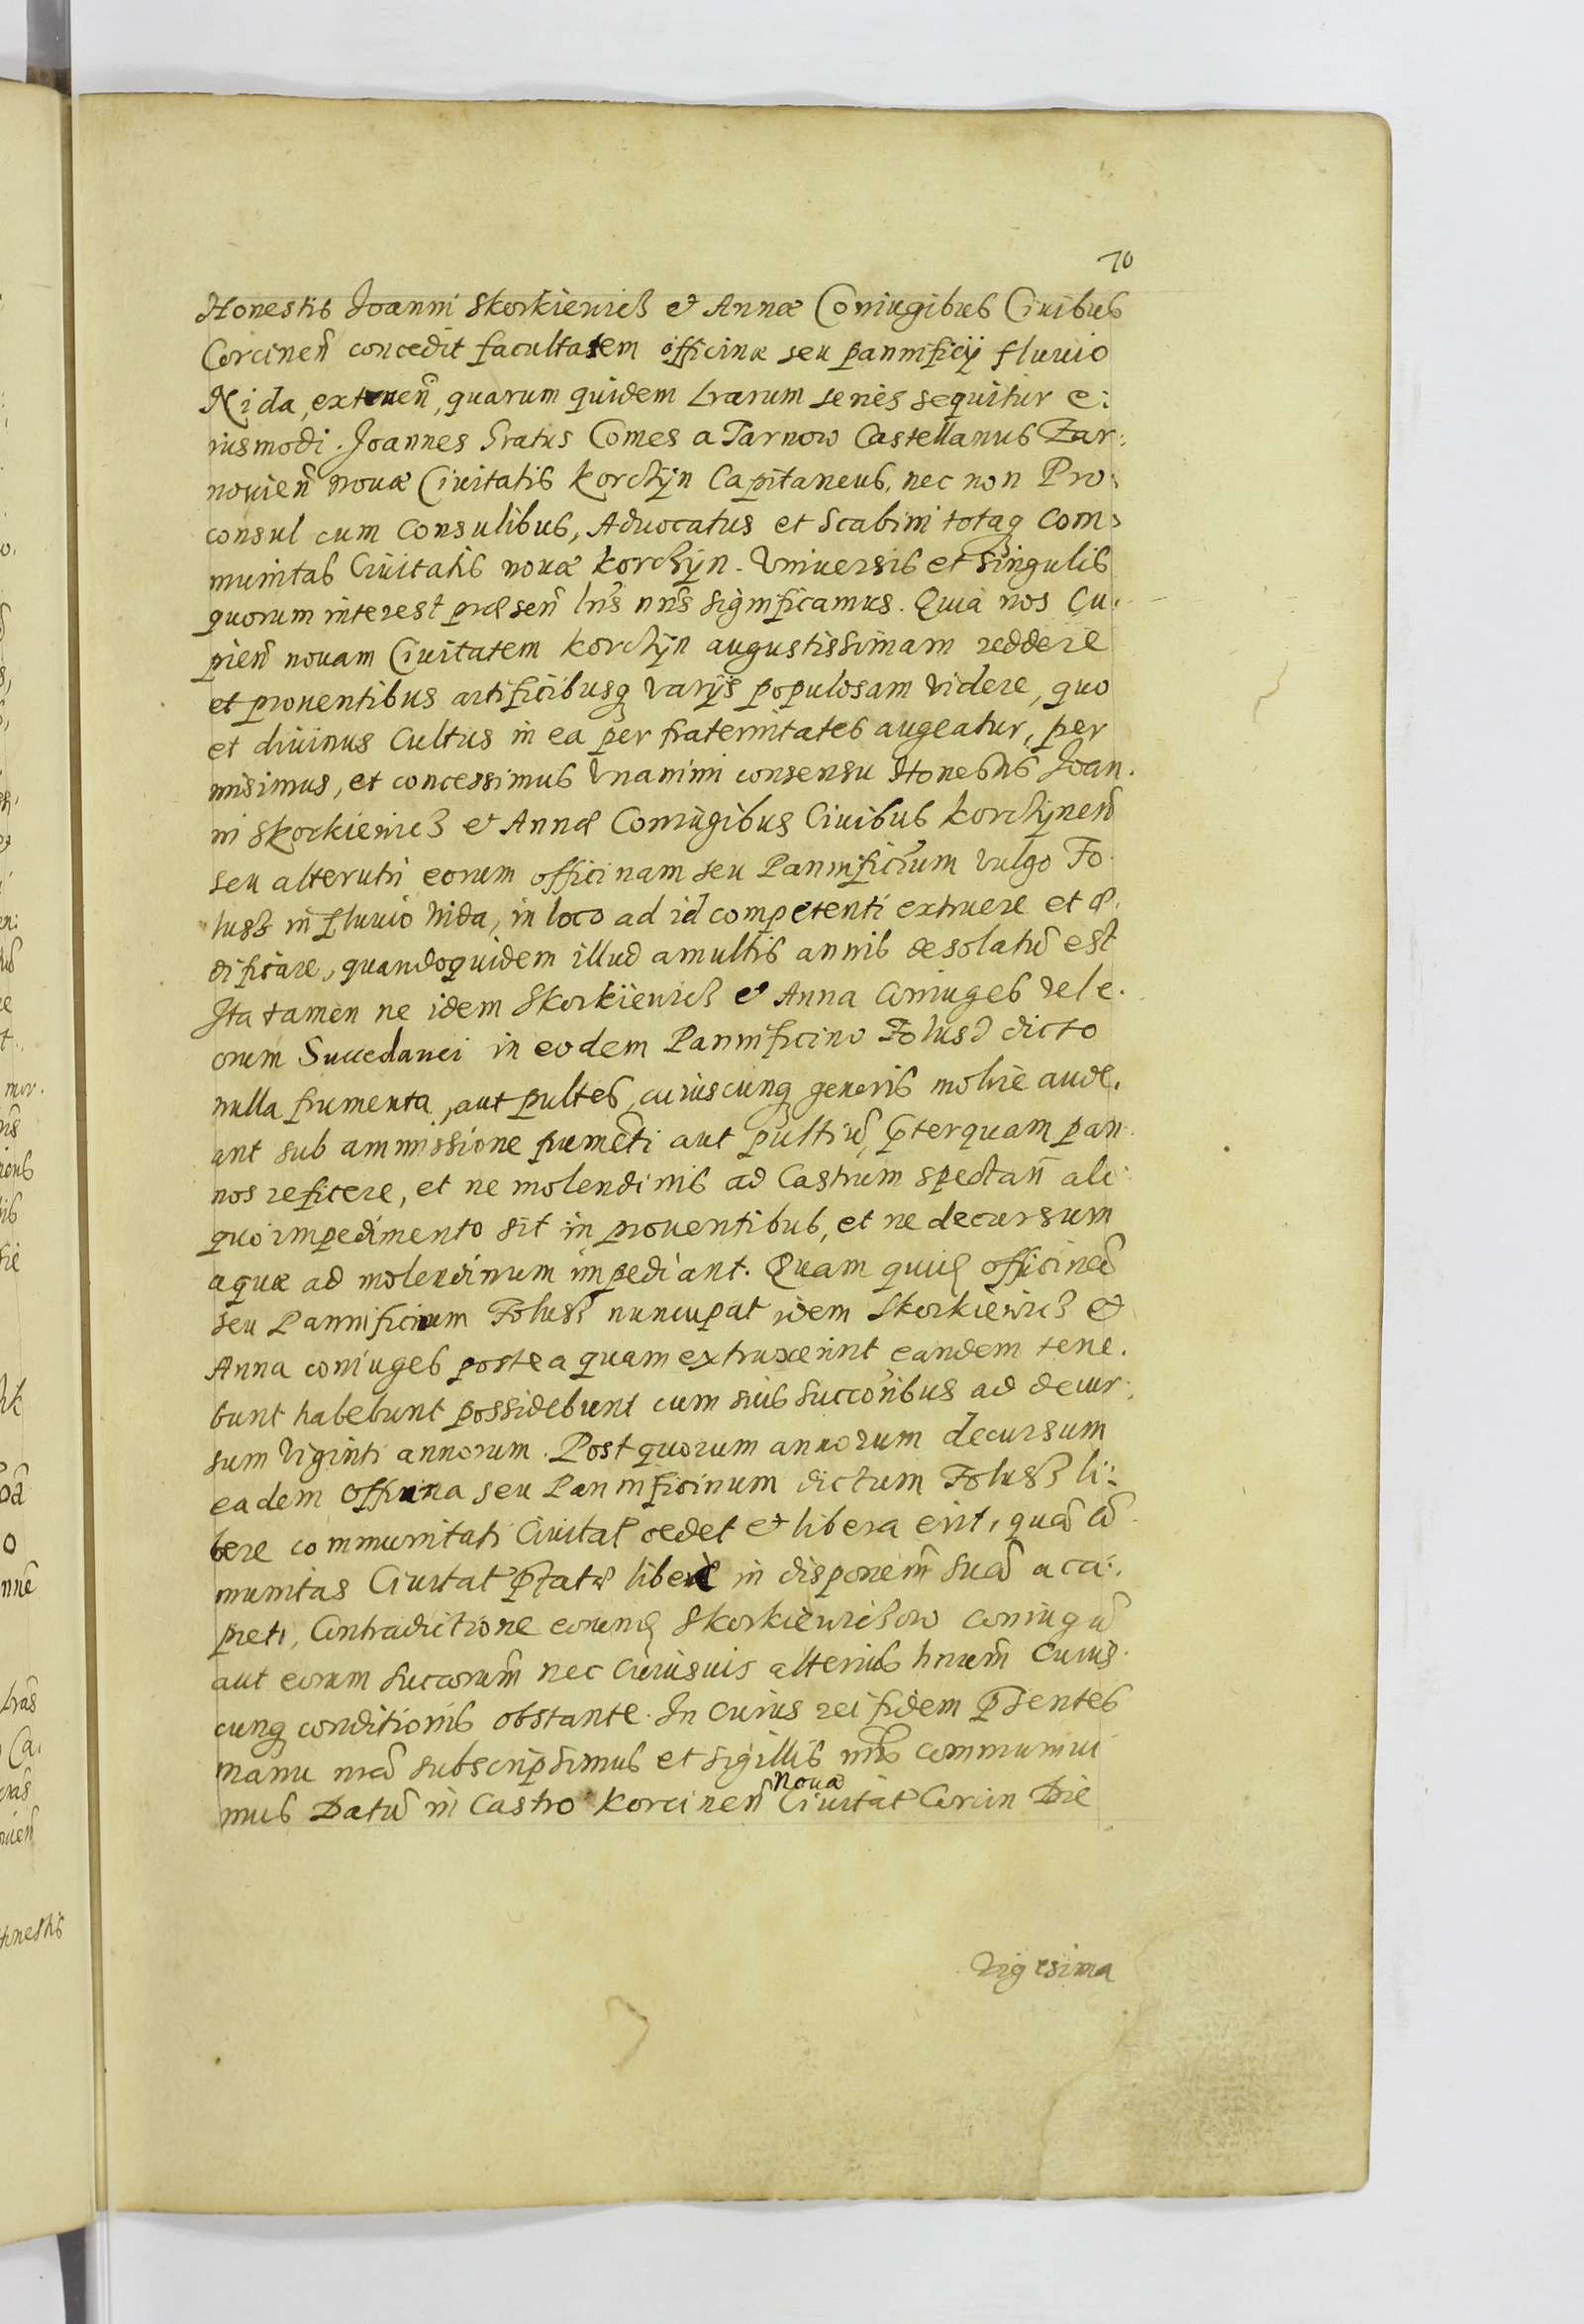 70
Honestis Joanni Skorkiewich et Annæ Coniugibus Ciuibus
Corcinen̄ concedit facultatem officinæ seu pannificij fluuio
Nida, extruen̄, quarum quidem Lrarum series sequitur e:
iusmodi. Joannes Gratus Comes a Tarnow Castellanus Zar:
nouien̄ nouæ Ciuitatis Korchÿn Capitaneus, nec non Pro:
consul cum Consulibus, Aduocatus et Scabini totaq Com:
munitas Ciuitatis nouæ Korchÿn. Vniuersis et singulis
quorum interest præsen̄ lris nris significamus. Quia nos Cu.
pien̄ nouam Ciuitatem Korchÿn augustissimam reddere
et prouentibus artificibusq varijs populosam videre, quo
et diuinus Cultus in ea per fraternitates augeatur, per
misimus, et concessimus Vnanimi consensu Honestis Joan.
ni Skorkiewich et Annæ Coniugibus Ciuibus Korchÿnen̄
seu alterutri eorum officinam seu Pannificium vulgo Fo.
lusz in fluuio Nida, in loco ad id competenti extruere et æ.
dificare, quandoquidem illud a multis annis desolatū est
Ita tamen ne idem Skorkiewich et Anna Coniuges vel e.
orum Succedanei in eodem Pannificino Folusz dicto
nulla frumenta, aut pultes, cuiuscunq generis molire aude.
ant sub ammissione frumēti aut pultiū, p̄terquam pan.
nos reficere, et ne molendinis ad Castrum spectan̄ ali:
quo impedimento sit in prouentibus, et ne decursum
aquæ ad molendinum impediant. Quam quid officinā
seu Pannificium Folusz nuncupat idem Skorkiewich et
Anna coniuges postea quam extruxerint eandem tene.
bunt habebunt possidebunt cum suis Succoribus ad decur:
sum viginti annorum. Post quorum annorum decursum
eadem Officina seu Pannificinum dictum Folusz li:
bere communitati Ciuitat cedet et libera erit, quā cō
munitas Ciuitat p̄fatæ libere in disponem̄ suā acci:.
piet, Contradictione eorund Skorkiewichow coniugū
aut eorum succorum̄ nec Cuiusuis alterius hnium̄ Cuius.
cunq conditionis obstante. In Cuius rei fidem p̄sentes
manu nrā subscripsimus et sigillis nris communiui
mus Datū in Castro Korcinen̄ Nouæ Ciuitat Corcin Die
Vigesima